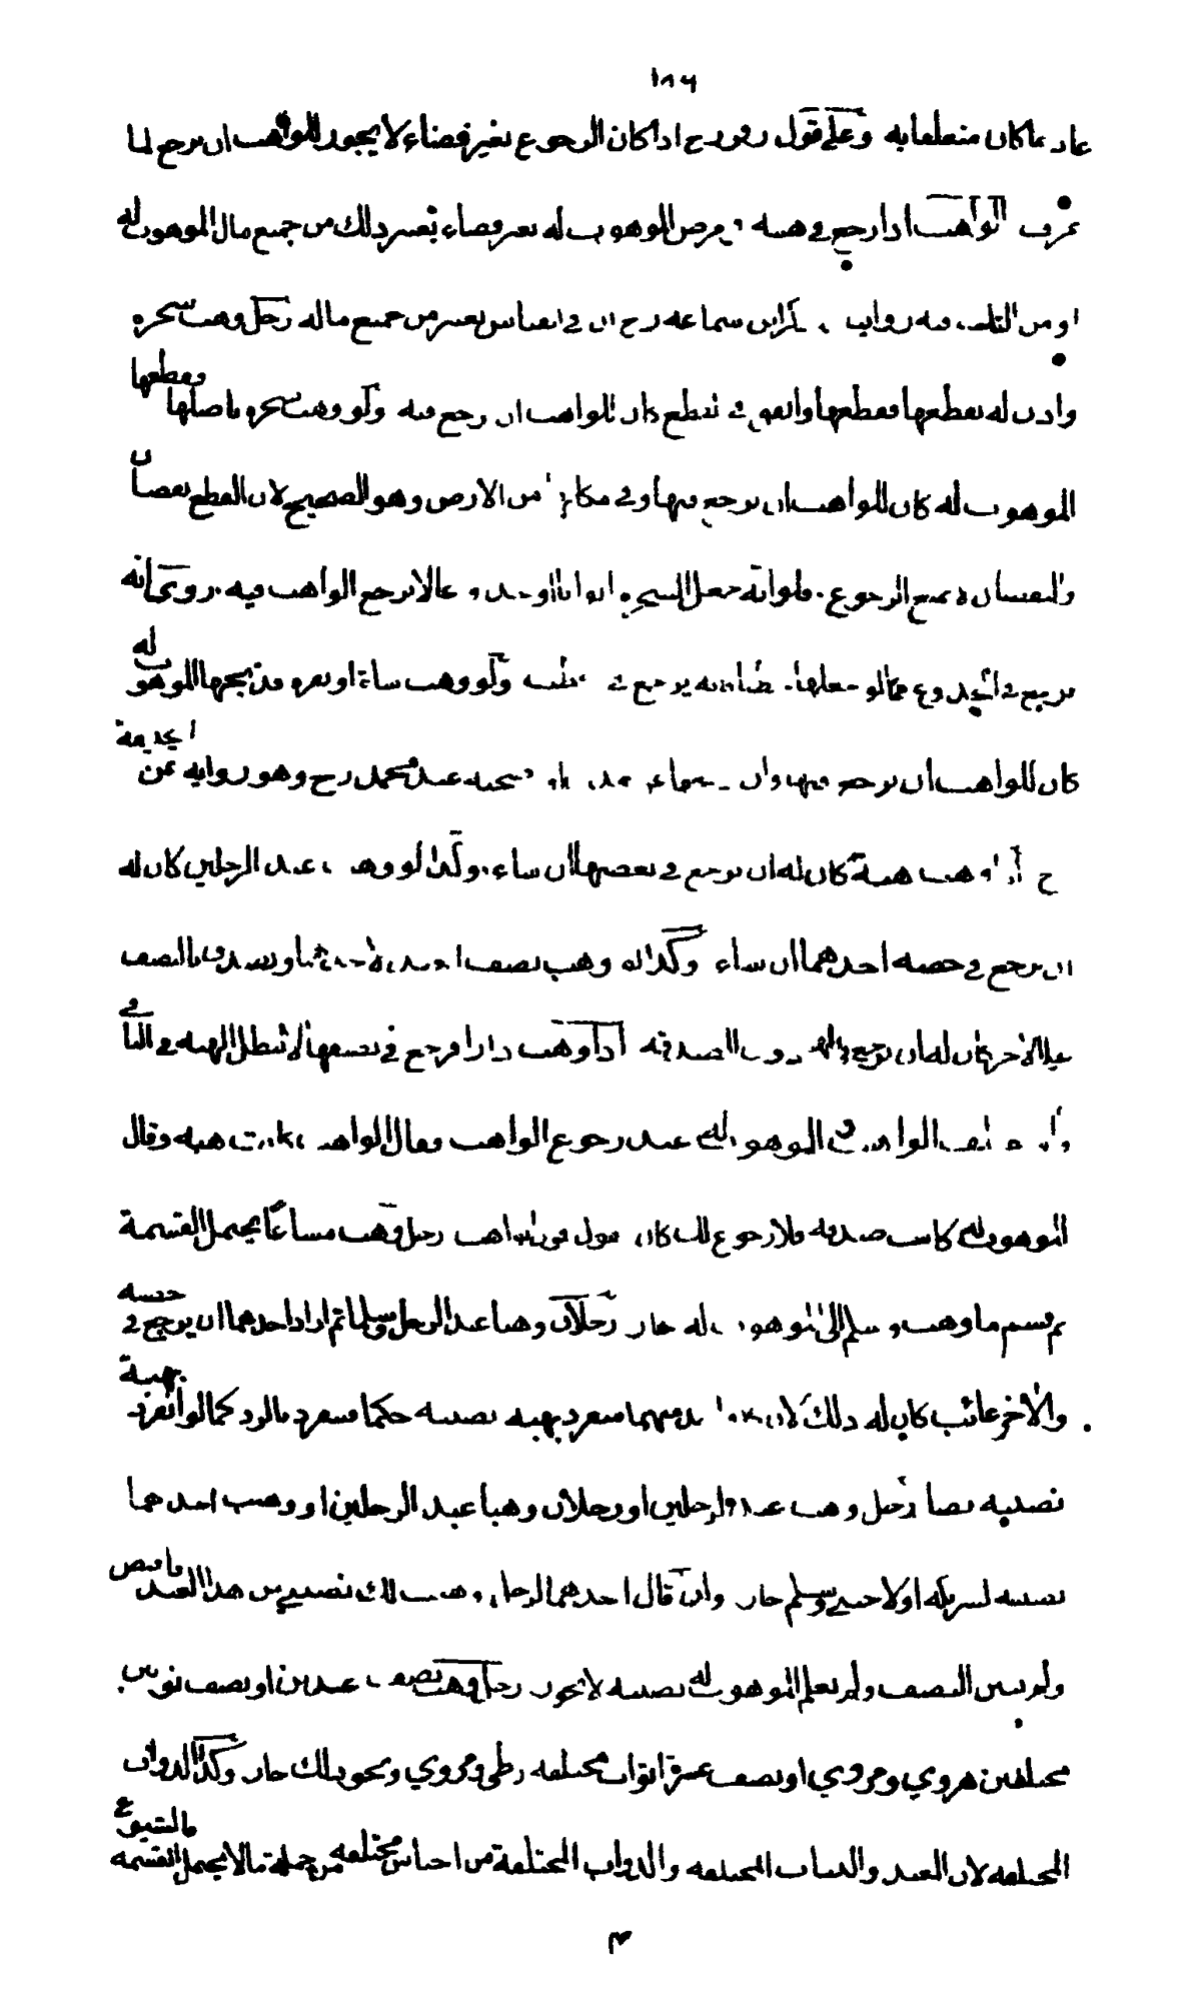 ١٨٦
عاد ما كان متعلقا به وعلى قول زفر رح اذا كان الرجوع بغير قضاء لا يجوز للواهب ان يرجع لما
عرف الواهب اذا رجع في هبته في مرض الموهوب له بغير قضاء يعتبر ذلك من جميع مال الموهوب له
او من الثلث فيه روايتان ذكر ابن سماعة رح ان في القياس يعتبر من جميع ماله رجل وهب شجرة
واذن له بقطعها فقطعها وانفق في القطع كان للواهب ان يرجع فيه ولو وهب شجرة باصلها وقطعها
الموهوب له كان للواهب ان يرجع فيها وفي مكانها من الارض وهو الصحيح لان القطع نقصان
والنقصان لا يمنع الرجوع فلو انه جعل الشجرة ابوابا او جذوعا لا يرجع الواهب فيه وروي انه
يرجع في الجذوع كما لو جعلها حطبا انه يرجع في حطبه ولو وهب شاة او بقرة فذبحها الموهوب له
كان للواهب ان يرجع فيها وان عند محمد رح وهو رواية عن ابي حنيفة
رح اذا وهب هبة كان له ان يرجع في بعضها ان شاء وكذا لو وهب عبدا لرجلين كان له
ان يرجع في حصة احدهما ان شاء وكذا انه وهب نصف لاحدهما وتصدق بالنصف
على الاخر كان له ان يرجع في الهبة دون الصدقة اذا وهب دارا فرجع في نصفها لا تبطل الهبة في الباقي
الواهب الموهوب له عند رجوع الواهب فقال الواهب كانت هبة وقال
الموهوب له كانت صدقة فلا رجوع لك كان القول قول الواهب رجل وهب مشاعا يحتمل القسمة
ثم قسم ما وهب وسلم الى الموهوب له جاز رجلان وهبا عبدا لرجل وسلما ثم اراد احدهما ان يرجع في حصته
والاخر غائب كان له ذلك لان كل واحد منهما متفرد بهبة نصيبه حكما فيتفرد بالرد كما لو انفرد بهبة
نصيبه نصا رجل وهب عبدا لرجلين او رجلان وهبا عبدا لرجلين او وهب احدهما
نصيبه لشريكه او لاجنبي وسلم جاز وان قال احدهما لرجل وهبت لك نصيبي من هذا العبد فاقبض
ولم يبين النصف ولم يعلم الموهوب له نصيبه لا يجوز رجل وهب نصف عبدين او نصف ثوبين
مختلفين هروي ومروي او نصف عشرة اثواب مختلفة زطي ومروي ونحو ذلك جاز وكذا الدواب
المختلفة لان العبد والثياب المختلفة والدواب المختلفة من اجناس مختلفة من جملة ما لا يحتمل القسمة فالشيوع